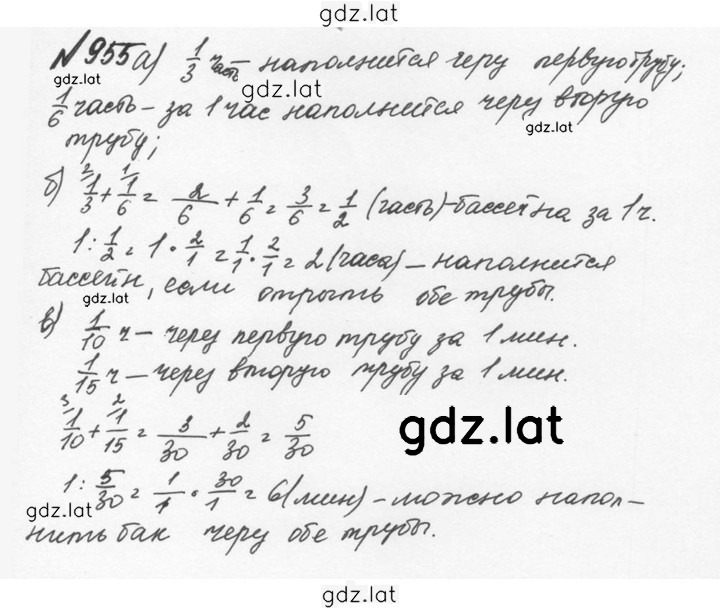 gdz.lat
№955 а) 1/3 часть – наполнится через первую трубу;
gdz.lat
gdz.lat
1/6 часть – за 1 час наполнится через вторую
gdz.lat
трубу;
б) 1/3 (2 + 1/6 (1 = 2/6 + 1/6 = 3/6 = 1/2 (часть) – бассейна за 1 ч.
1 : 1/2 = 1 · 2/1 = 1/1 · 2/1 = 2 (часа) – наполнится
бассейн, если открыть обе трубы.
gdz.lat
в) 1/10 ч – через первую трубу за 1 мин.
1/15 ч – через вторую трубу за 1 мин.
1/10 (3 + 1/15 (2 = 3/30 + 2/30 = 5/30
gdz.lat
1 : 5/30 = 1/1 · 30/1 = 6 (мин) – можно напол–
gdz.lat
нить бак через обе трубы.
gdz.lat